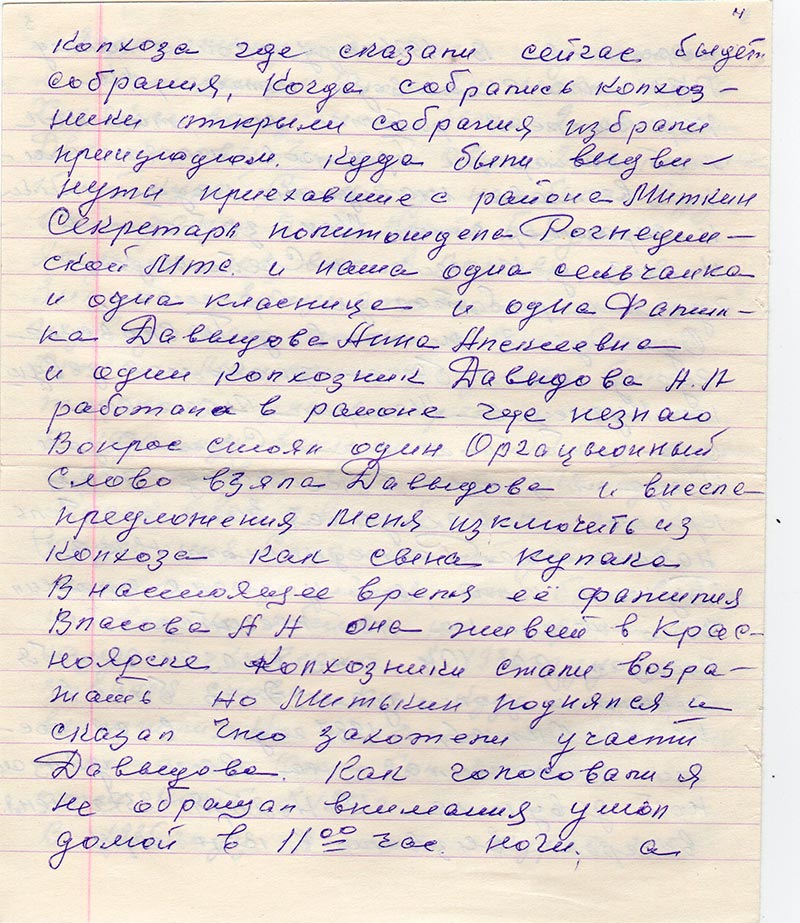 4
колхоза где сказали сейчас будет
собрания, Когда собрались колхоз-
ники открыли собрания, избрали
куда были выдви-
нуты приехавшие с района Миткин
Секретарь политотдела Рогнедин-
ской Мтс. и наша одна сельчанка
и одна класница и одна Фамил-
ка Давыдова Анна Алексеевна
и один колхозник Давыдова А.А
работала в районе где незнаю
Вопрос стоял один Оргационный
Слово взяла Давыдова и внесла
предложения меня изключить из
колхоза как сына кулака
В настоящее время её фамилия
Власова А А она живет в Крас-
ноярске Колхозники стали возра-
жать но Митькин поднялся и
сказал что захотели участи
Давыдова. Как голосовали я
не обращал внимания ушол
домой в 11 00 час. ночи, а